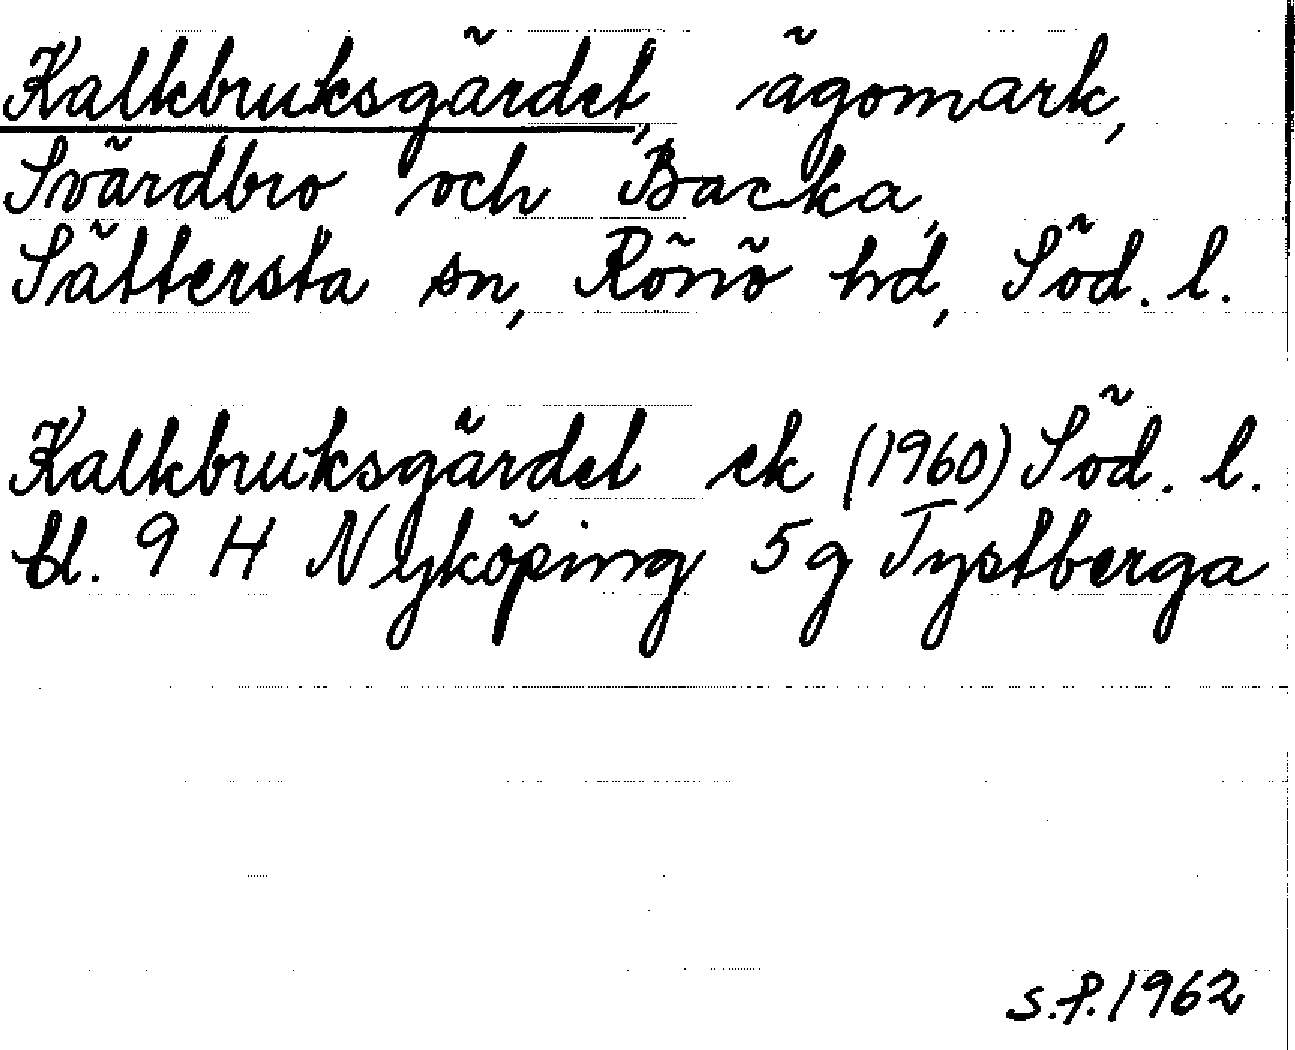 Kalkbruksgärdet, ägomark,
Svärdbro och Backa,
Sättersta sn, Rönö hd, Söd. l.
Kalkbruksgärdet ek (1960) Söd. l.
bl. 9 H Nyköping 5 g Tystberga
S.P. 1962